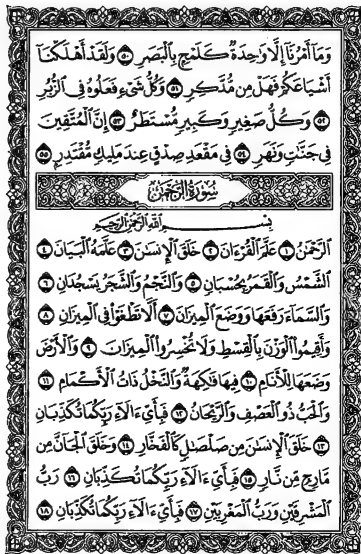 وَمَآ أَمْرُنَآ إِلَّا وَٰحِدَةٌ كَلَمْحٍۭ بِٱلْبَصَرِ ٥٠ وَلَقَدْ أَهْلَكْنَآ
أَشْيَاعَكُمْ فَهَلْ مِن مُّدَّكِرٍ ٥١ وَكُلُّ شَىْءٍ فَعَلُوهُ فِى ٱلزُّبُرِ
٥٢ وَكُلُّ صَغِيرٍ وَكَبِيرٍ مُّسْتَطَرٌ ٥٣ إِنَّ ٱلْمُتَّقِينَ
فِى جَنَّٰتٍ وَنَهَرٍ ٥٤ فِى مَقْعَدِ صِدْقٍ عِندَ مَلِيكٍ مُّقْتَدِرٍۭ ٥٥
سُورَةُ الرَّحْمٰن
بِسْمِ ٱللَّهِ ٱلرَّحْمَٰنِ ٱلرَّحِيمِ
ٱلرَّحْمَٰنُ ١ عَلَّمَ ٱلْقُرْءَانَ ٢ خَلَقَ ٱلْإِنسَٰنَ ٣ عَلَّمَهُ ٱلْبَيَانَ ٤
ٱلشَّمْسُ وَٱلْقَمَرُ بِحُسْبَانٍ ٥ وَٱلنَّجْمُ وَٱلشَّجَرُ يَسْجُدَانِ ٦
وَٱلسَّمَآءَ رَفَعَهَا وَوَضَعَ ٱلْمِيزَانَ ٧ أَلَّا تَطْغَوْا۟ فِى ٱلْمِيزَانِ ٨
وَأَقِيمُوا۟ ٱلْوَزْنَ بِٱلْقِسْطِ وَلَا تُخْسِرُوا۟ ٱلْمِيزَانَ ٩ وَٱلْأَرْضَ
وَضَعَهَا لِلْأَنَامِ ١٠ فِيهَا فَٰكِهَةٌ وَٱلنَّخْلُ ذَاتُ ٱلْأَكْمَامِ ١١
وَٱلْحَبُّ ذُو ٱلْعَصْفِ وَٱلرَّيْحَانُ ١٢ فَبِأَىِّ ءَالَآءِ رَبِّكُمَا تُكَذِّبَانِ
١٣ خَلَقَ ٱلْإِنسَٰنَ مِن صَلْصَٰلٍ كَٱلْفَخَّارِ ١٤ وَخَلَقَ ٱلْجَآنَّ مِن
مَّارِجٍ مِّن نَّارٍ ١٥ فَبِأَىِّ ءَالَآءِ رَبِّكُمَا تُكَذِّبَانِ ١٦ رَبُّ
ٱلْمَشْرِقَيْنِ وَرَبُّ ٱلْمَغْرِبَيْنِ ١٧ فَبِأَىِّ ءَالَآءِ رَبِّكُمَا تُكَذِّبَانِ ١٨